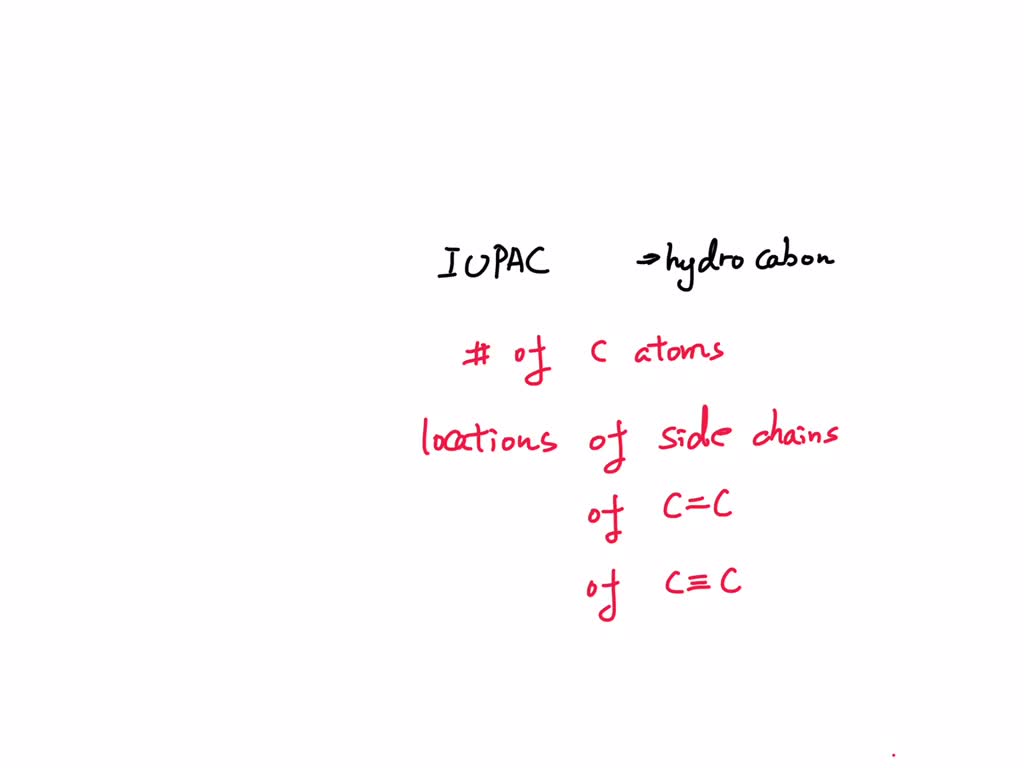 IUPAC → hydro cabon
# of C atoms
locations of side chains
of C=C
of C≡C